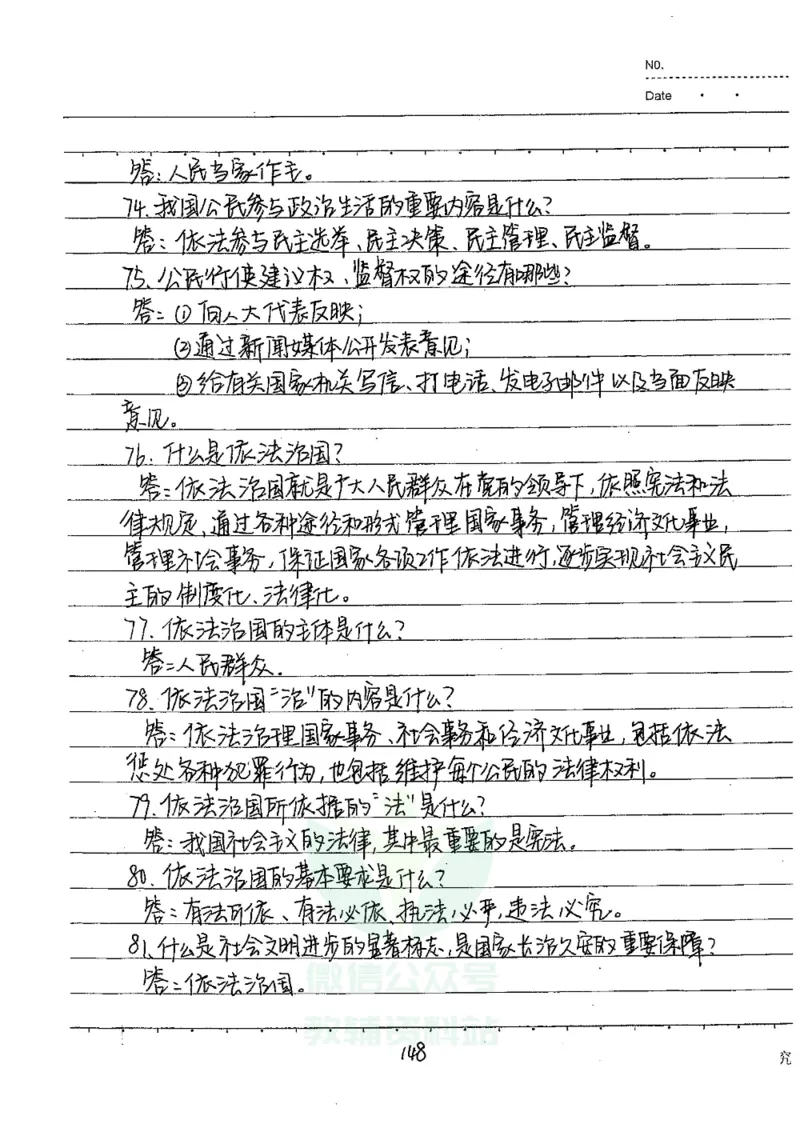 No.
Date
答:人民当家作主。
74.我国公民参与政治生活的重要内容是什么?
答:依法参与民主选举、民主决策、民主管理、民主监督。
75.公民行使建议权、监督权的途径有哪些?
答:①向人大代表反映;
②通过新闻媒体公开发表意见;
③给有关国家机关写信、打电话、发电子邮件以及当面反映
意见。
76.什么是依法治国?
答:依法治国就是广大人民群众在党的领导下,依照宪法和法
律规定,通过各种途径和形式管理国家事务,管理经济文化事业,
管理社会事务,保证国家各项工作依法进行,逐步实现社会主义民
主的制度化、法律化。
77.依法治国的主体是什么?
答:人民群众.
78.依法治国“治”的内容是什么?
答:依法治理国家事务、社会事务和经济文化事业,包括依法
惩处各种犯罪行为,也包括维护每个公民的法律权利。
79.依法治国所依据的“法”是什么?
答:我国社会主义的法律,其中最重要的是宪法。
80.依法治国的基本要求是什么?
答:有法可依、有法必依、执法必严,违法必究。
81.什么是社会文明进步的显著标志,是国家长治久安的重要保障?
答:依法治国。
微信公众号
教辅资料站
148
究